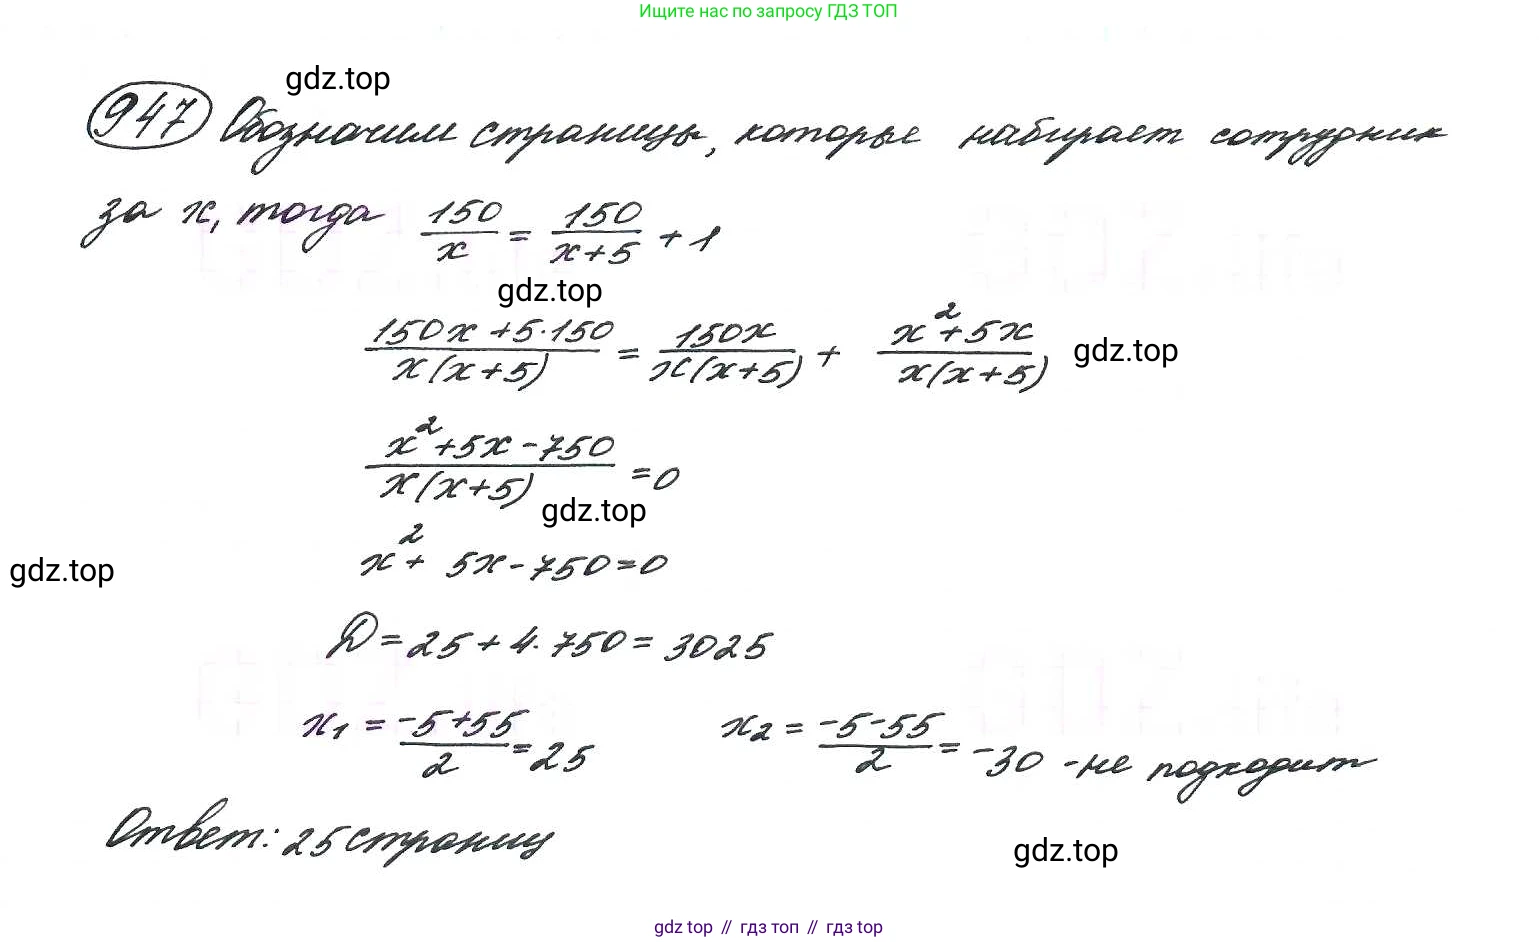 Ищите нас по запросу ГДЗ ТОП
gdz.top
947 Обозначим страницы, которые набирает сотрудник
за x, тогда 150/x = 150/(x+5) + 1
gdz.top
(150x + 5·150)/(x(x+5)) = 150x/(x(x+5)) + (x² + 5x)/(x(x+5))
gdz.top
(x² + 5x - 750)/(x(x+5)) = 0
gdz.top
x² + 5x - 750 = 0
gdz.top
D = 25 + 4·750 = 3025
x₁ = (-5+55)/2 = 25 x₂ = (-5-55)/2 = -30 - не подходит
Ответ: 25 страниц
gdz.top
gdz top // гдз топ // гдз top